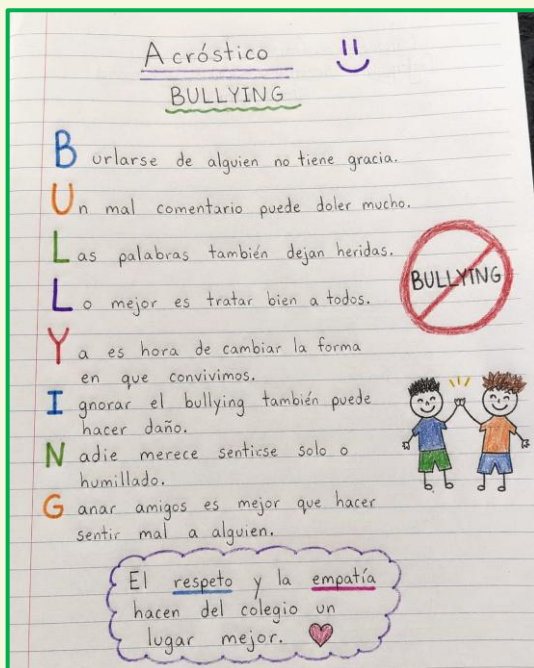 Acróstico
BULLYING
Burlarse de alguien no tiene gracia.
Un mal comentario puede doler mucho.
Las palabras también dejan heridas.
Lo mejor es tratar bien a todos.
BULLYING
Ya es hora de cambiar la forma
en que convivimos.
Ignorar el bullying también puede
hacer daño.
Nadie merece sentirse solo o
humillado.
Ganar amigos es mejor que hacer
sentir mal a alguien.
El respeto y la empatía
hacen del colegio un
lugar mejor.